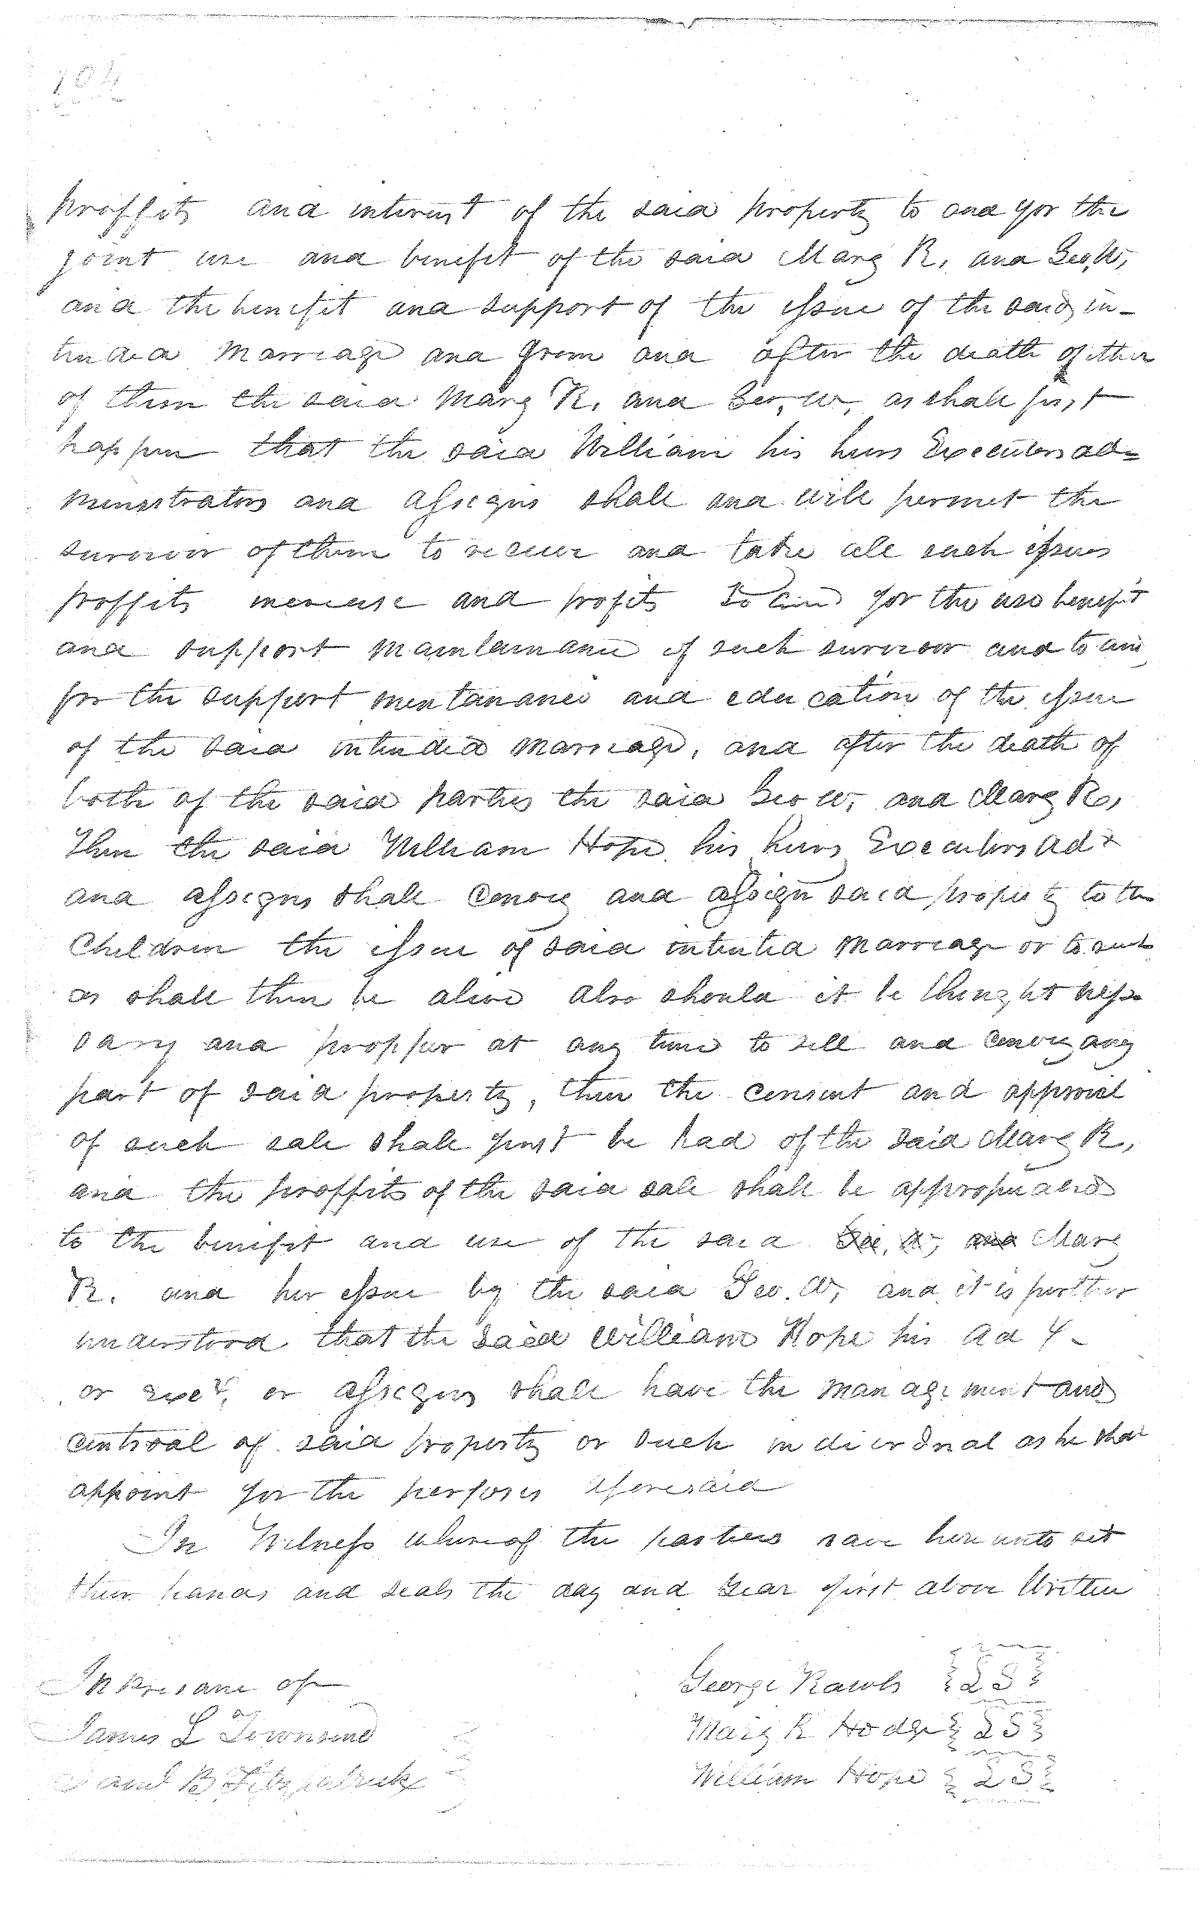 104
proffits and interest of the said property to and for the
joint use and benefit of the said Mary R. and Geo. W,
and the benefit and support of the issue of the said in-
tended Marriage and from and after the death of either
of them the said Mary R. and Geo. W, as shall first
happen that the said William his heirs Executors ad=
ministrators and assigns shall and will permit the
survivor of them to receive and take all such issues
proffits increase and profits to and for the use benefit
and support maintainance of such survivor and to and
for the support mentanance and education of the issue
of the said intended marriage, and after the death of
both of the said parties the said Geo W, and Mary R,
Then the said William Hope his heirs Executors Ad+
and assigns shall convey and assign said property to the
Children the issue of said intentid Marriage or to such
as shall then be alive Also should it be thought neses
sary and propper at any time to sell and convey any
part of said property, then the consent and approval
of such sale shall first be had of the said Mary R,
and the proffits of the said sale shall be appropriated
to the benefit and use of the said Geo. W, and Mary
R. and her issue by the said Geo. W, and it is further
understood that the said William Hope his Ad
or Exer. or assigns shall have the management and
controal of said property or such individual as he shall
appoint for the purposes aforesaid
In Witness whereof the parties have hereunto set
their hands and seals the day and year first above Written
In presance of
George Rawls LS
James L Townsend
Mary R Hodge LS
B Fitzpatrick
William Hope LS